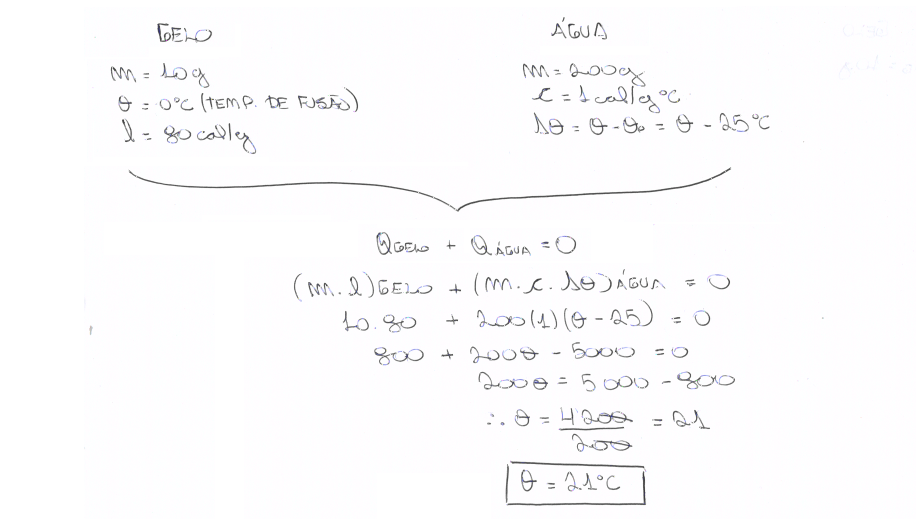 GELO
m = 10g
θ = 0°C (TEMP. DE FUSÃO)
l = 80 cal/g
ÁGUA
m = 200g
c = 1 cal/g°C
Δθ = θ - θ₀ = θ - 25°C
QGELO + QÁGUA = 0
(m.l)GELO + (m.c.Δθ)ÁGUA = 0
10.80 + 200(1)(θ - 25) = 0
800 + 200θ - 5000 = 0
200θ = 5000 - 800
∴ θ = 4200/200 = 21
θ = 21°C